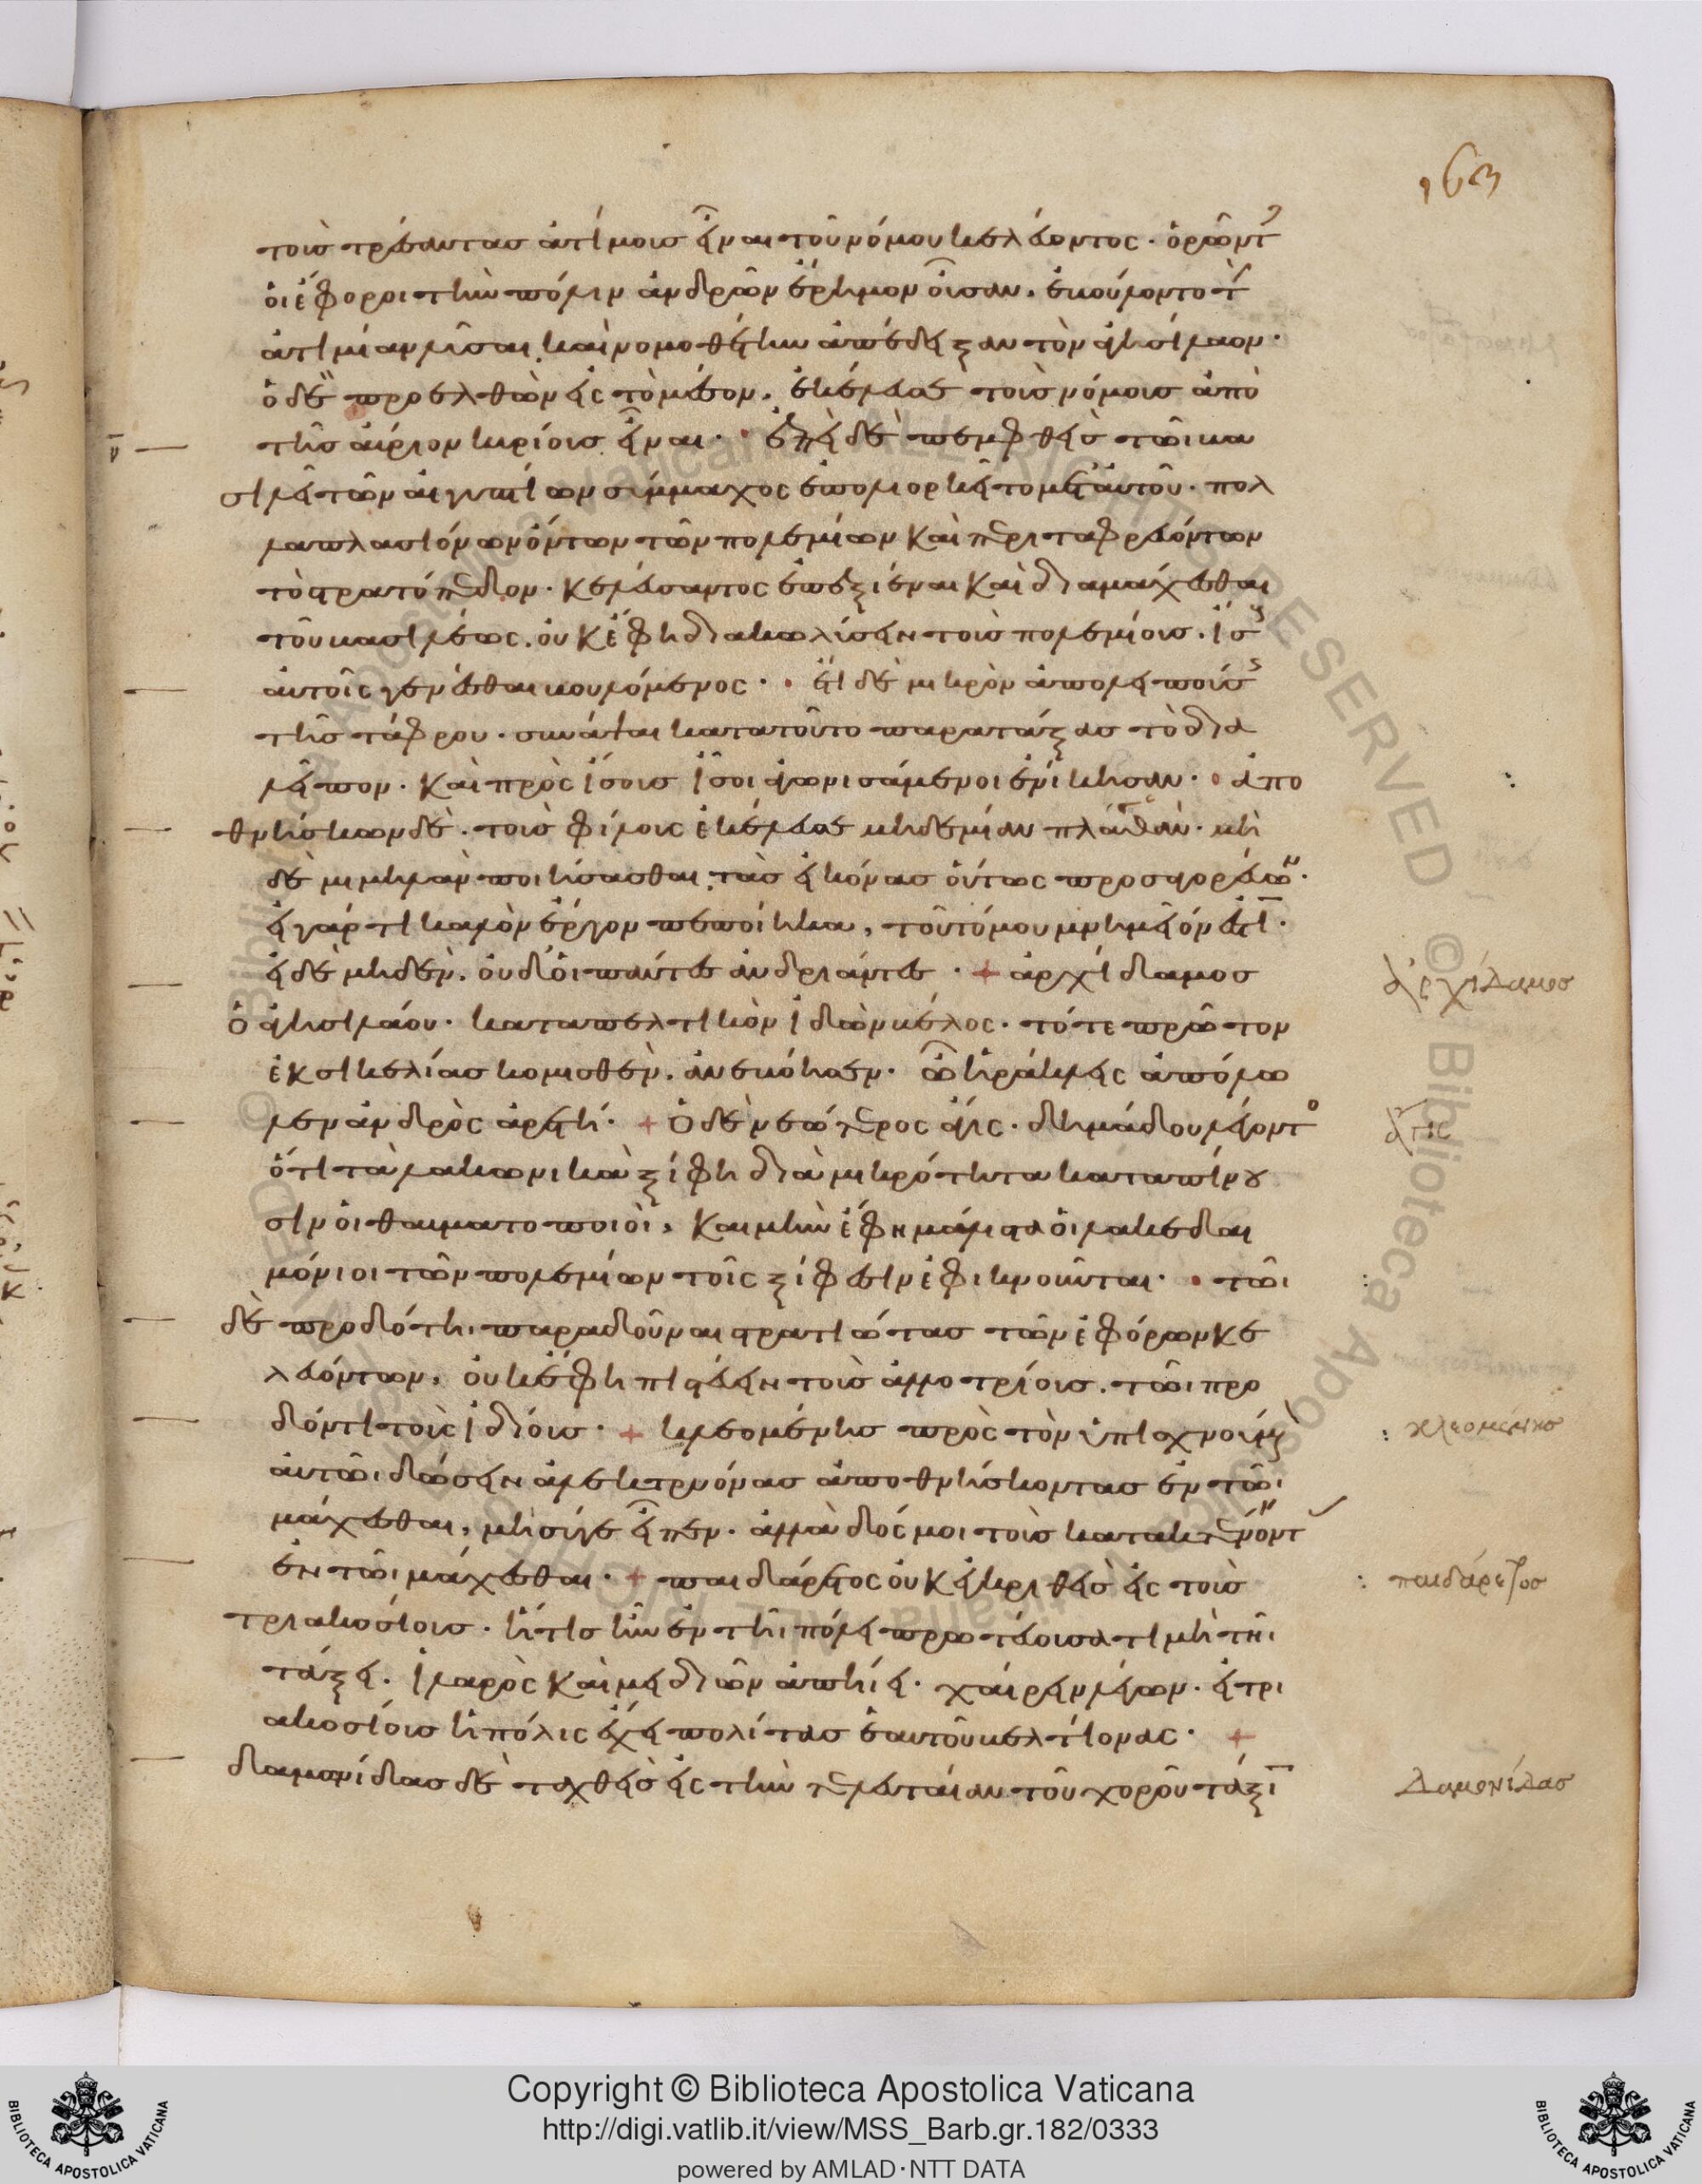 163
τοὺς τρέσαντας ἀτίμους εἶναι τοῦ νόμου κελεύοντος· ὁρῶντ
οἱ ἔφοροι τὴν πόλιν ἀνδρῶν ἔρημον οὖσαν. ἐβούλοντο τ
ἀτιμίαν λῦσαι, καὶ νομοθέτην ἀπέδειξαν τὸν ἀγησίλαον·
ὁ δὲ προελθὼν εἰς τὸ μέσον, ἐκέλευσε τοὺς νόμους ἀπὸ
τῆς αὔριον κυρίους εἶναι· ἐπεὶ δὲ πεμφθεὶς τῶι βα
σιλεῖ τῶν αἰγυπτίων σύμμαχος ἐπολιορκεῖτο μετ αὐτοῦ· πολ
λαπλασιόνων ὄντων τῶν πολεμίων καὶ περιταφρευόντων
τὸ στρατόπεδον· κελεύσαντος ἐπεξιέναι καὶ διαμάχεσθαι
τοῦ βασιλέως. οὐκ ἔφη διακωλύσειν τοὺς πολεμίους. ἴσους
αὐτοῖς γενέσθαι βουλόμενος· ἔτι δὲ μικρὸν ἀπολειπούσης
τῆς τάφρου· συνάψαι κατὰ τοῦτο παρατάξας τὸ δια
λεῖπον· καὶ πρὸς ἴσους ἴσοι ἀγωνισάμενοι ἐνίκησαν· ἀπο
θνήσκων δὲ· τοὺς φίλους ἐκέλευσε μηδεμίαν πλαστὰν· μὴ
δὲ μιμηλὰν ποιήσασθαι, τὰς εἰκόνας οὕτως προσαγορεύων·
εἰ γάρ τι καλὸν ἔργον πεποίηκα, τοῦτό μου μνημεῖόν ἐστι·
εἰ δὲ μηδὲν, οὐδ οἱ πάντες ἀνδριάντες· + ἀρχίδαμος
ὁ ἀγησιλάου· καταπελτικὸν ἰδὼν βέλος· τότε πρῶτον
ἐκ σικελίας κομισθὲν, ἀνεβόησεν· ὦ ἡράκλεις ἀπόλω
λεν ἀνδρὸς ἀρετή· + ὁ δὲ νεώτερος ἆγις· δημάδου λέγοντο
ὅτι τὰ λακωνικὰ ξίφη διὰ μικρότητα καταπίνου
σιν οἱ θαυματοποιοὶ, καὶ μὴν ἔφη μάλιστα οἱ λακεδαι
μόνιοι τῶν πολεμίων τοῖς ξίφεσιν ἐφικνοῦνται· τῶι
δὲ προδότηι παραδοῦναι στρατιώτας τῶν ἐφόρων κε
λευόντων, οὐκ ἔφη πιστεύειν τοὺς ἀλλοτρίους τῶι προ
δόντι τοὺς ἰδίους· + κλεομένης πρὸς τὸν ὑπισχνούμενον
αὐτῶι δώσειν ἀλεκτρυόνας ἀποθνήσκοντας ἐν τῶι
μάχεσθαι, μὴ σύγε εἶπεν· ἀλλὰ δός μοι τοὺς κατακτείνοντ
ἐν τῶι μάχεσθαι· + παιδάρετος οὐκ ἐγκριθεὶς εἰς τοὺς
τριακοσίους· ἥτις ἦν ἐν τῆι πόλει πρωτεύουσα τιμὴ τῆι
τάξει· ἱλαρὸς καὶ μειδιῶν ἀπήιει· χαίρειν λέγων· εἰ τρι
ακοσίους ἡ πόλις ἔχει πολίτας ἑαυτοῦ βελτίονας· +
δαμωνίδας δὲ ταχθεὶς εἰς τὴν τελευταίαν τοῦ χοροῦ τάξι
ἀρχίδαμος
ἆγις
κλεομένησ
παιδάρετος
Δαμονίδας
BIBLIOTECA APOSTOLICA VATICANA
Copyright © Biblioteca Apostolica Vaticana
http://digi.vatlib.it/view/MSS_Barb.gr.182/0333
powered by AMLAD·NTT DATA
BIBLIOTECA APOSTOLICA VATICANA